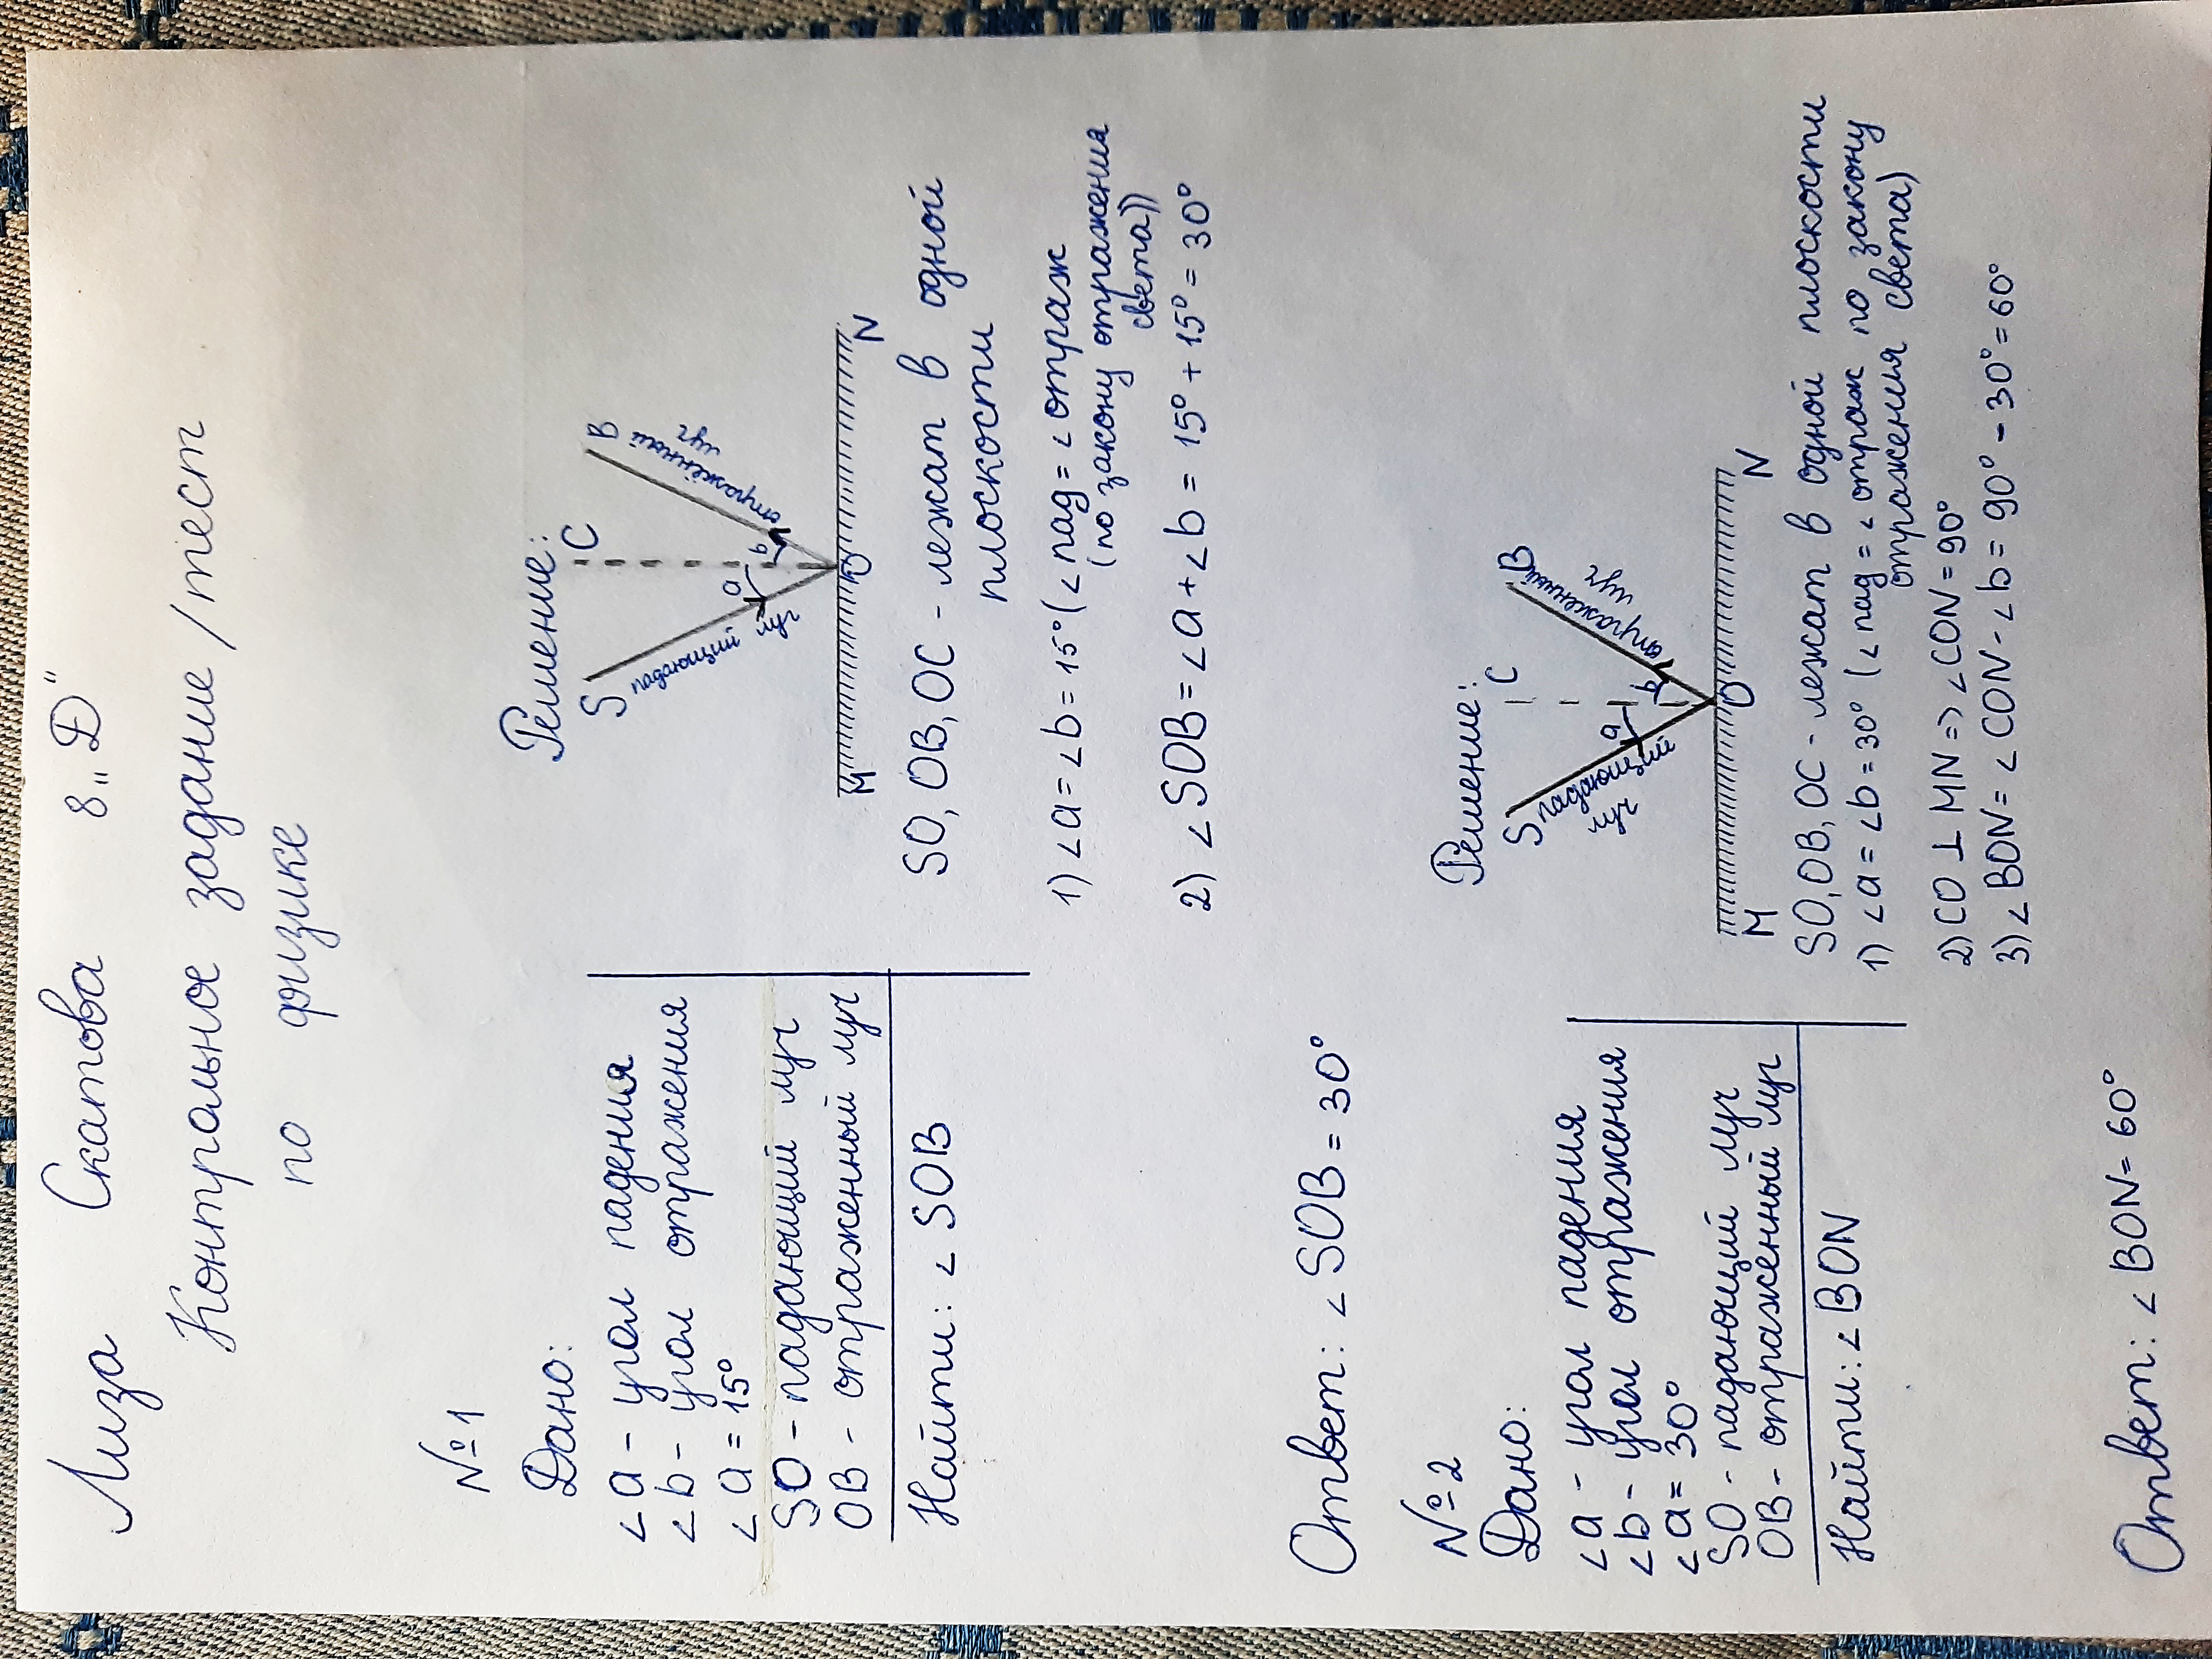 Лиза Скатова 8 „Д"
Контрольное задание /тест
по физике
№1
Дано:
∠a - угол падения
∠b - угол отражения
∠a = 15°
SO - падающий луч
OB - отраженный луч
Найти: ∠SOB
Решение:
S
C
B
падающий
луч
отражённый
луч
a
b
M
O
N
SO, OB, OC - лежат в одной
плоскости
1) ∠a = ∠b = 15° (∠ пад = ∠ отраж
(по закону отражения
света))
2) ∠SOB = ∠a + ∠b = 15° + 15° = 30°
Ответ: ∠SOB = 30°
№2
Дано:
∠a - угол падения
∠b - угол отражения
∠a = 30°
SO - падающий луч
OB - отраженный луч
Найти: ∠BON
Решение:
S
C
B
падающий
луч
отраженный
луч
a
b
M
O
N
SO, OB, OC - лежат в одной плоскости
1) ∠a = ∠b = 30° (∠ пад = ∠ отраж по закону
отражения света)
2) CO ⊥ MN => ∠CON = 90°
3) ∠BON = ∠CON - ∠b = 90° - 30° = 60°
Ответ: ∠BON = 60°